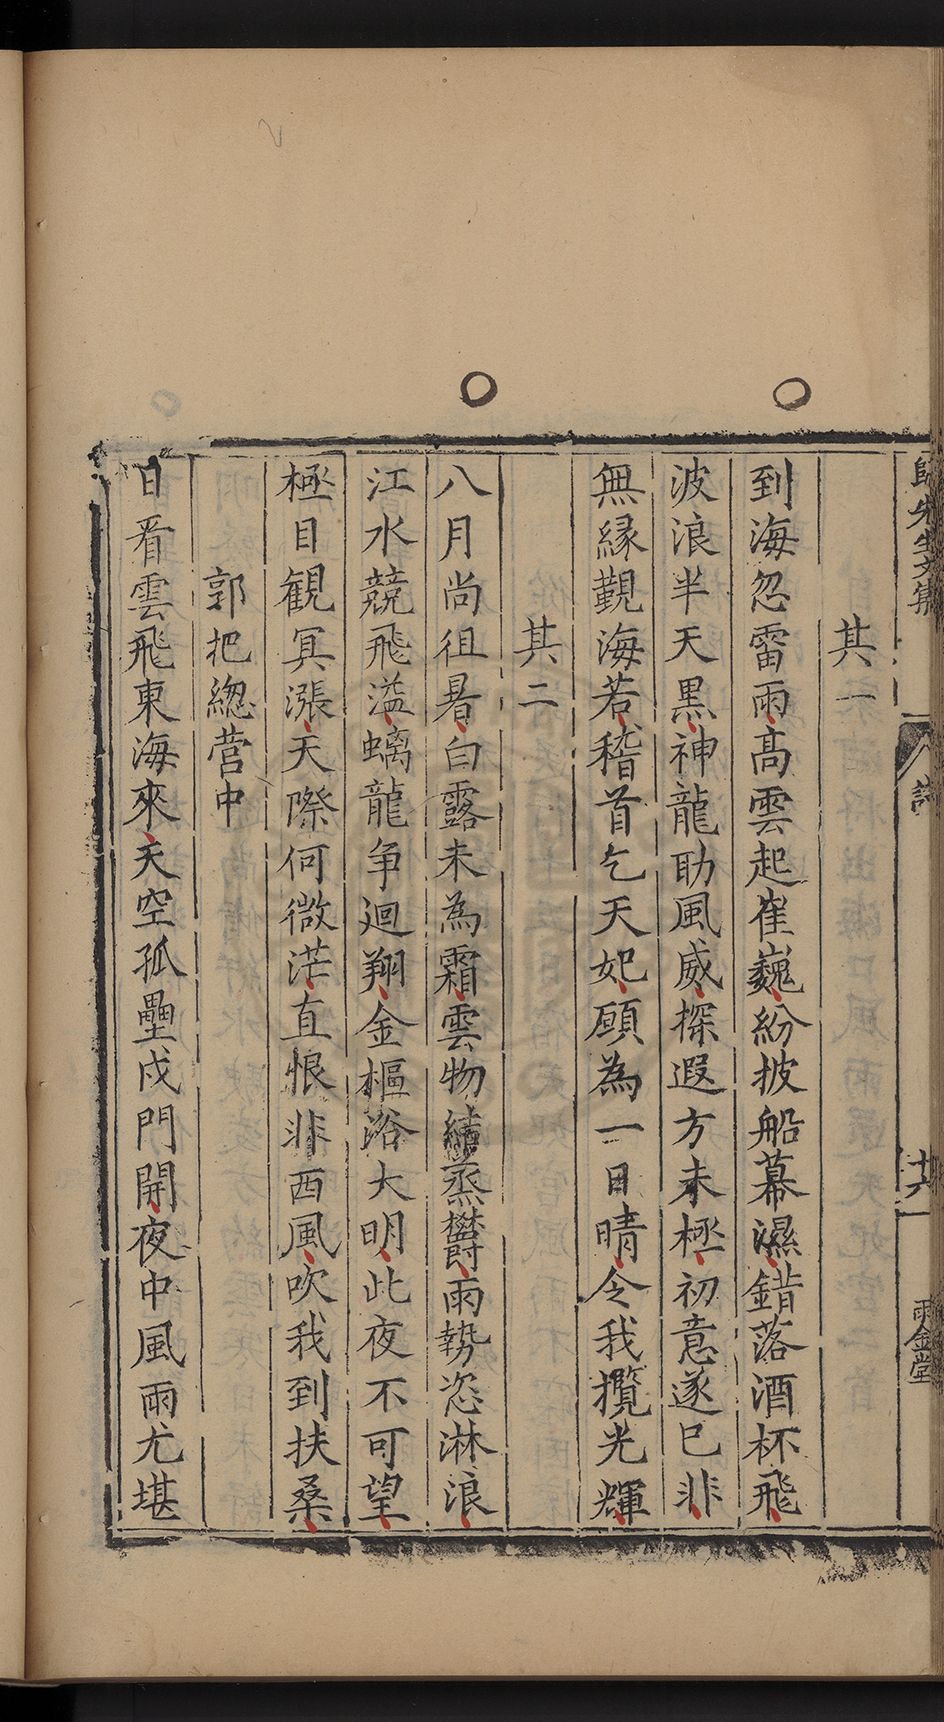 先生文集
詩
十六
雨金堂
其一
到海忽雷雨高雲起崔巍紛披船幕濕錯落酒杯飛
波浪半天黑神龍助風威探遐方未極初意遂已非
無縁觀海若稽首乞天妃願為一日晴令我攬光輝
其二
八月尚徂暑白露未為霜雲物結烝欝雨勢恣淋浪
江水競飛溢螭龍争迴翔金樞浴大明此夜不可望
極目観冥漲天際何微茫直恨非西風吹我到扶桑
郭把總营中
日看雲飛東海來天空孤壘戍門開夜中風雨尤堪